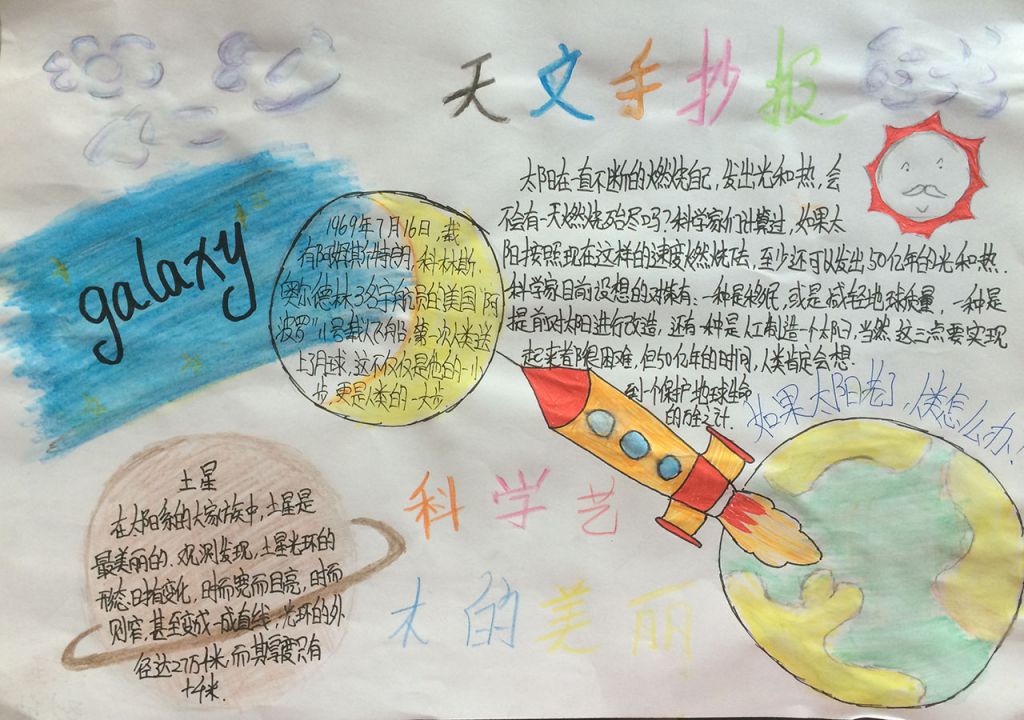 天文手抄报
galaxy
1969年7月16日，载
有阿姆斯特朗，科林斯.
奥尔德林3名宇航员的美国"阿
波罗"11号载人飞船，第一次人类送
上月球，这不仅仅是他的一小
步，更是人类的一大步
太阳在一直不断的燃烧自己，发出光和热，会
不会有一天燃烧殆尽吗？科学家们计算过，如果太
阳按照现在这样的速度燃烧下去，至少还可以发出50亿年的光和热.
科学家目前设想的对策有：一种是移民，或是减轻地球质量，一种是
提前对太阳进行改造，还有一种是人工制造一个太阳，当然这三点要实现
起来都很困难，但50亿年的时间，人类肯定会想.
到一个保护地球生命
的万全之计.
如果太阳老了，人类怎么办！
土星
在太阳系的大家族中，土星是
最美丽的.观测发现，土星光环的
形态日有变化，时而宽而且亮，时而
则窄，甚至变成一成直线，光环的外
径达27万千米，而其厚度只有
十千米.
科学艺
术的美丽